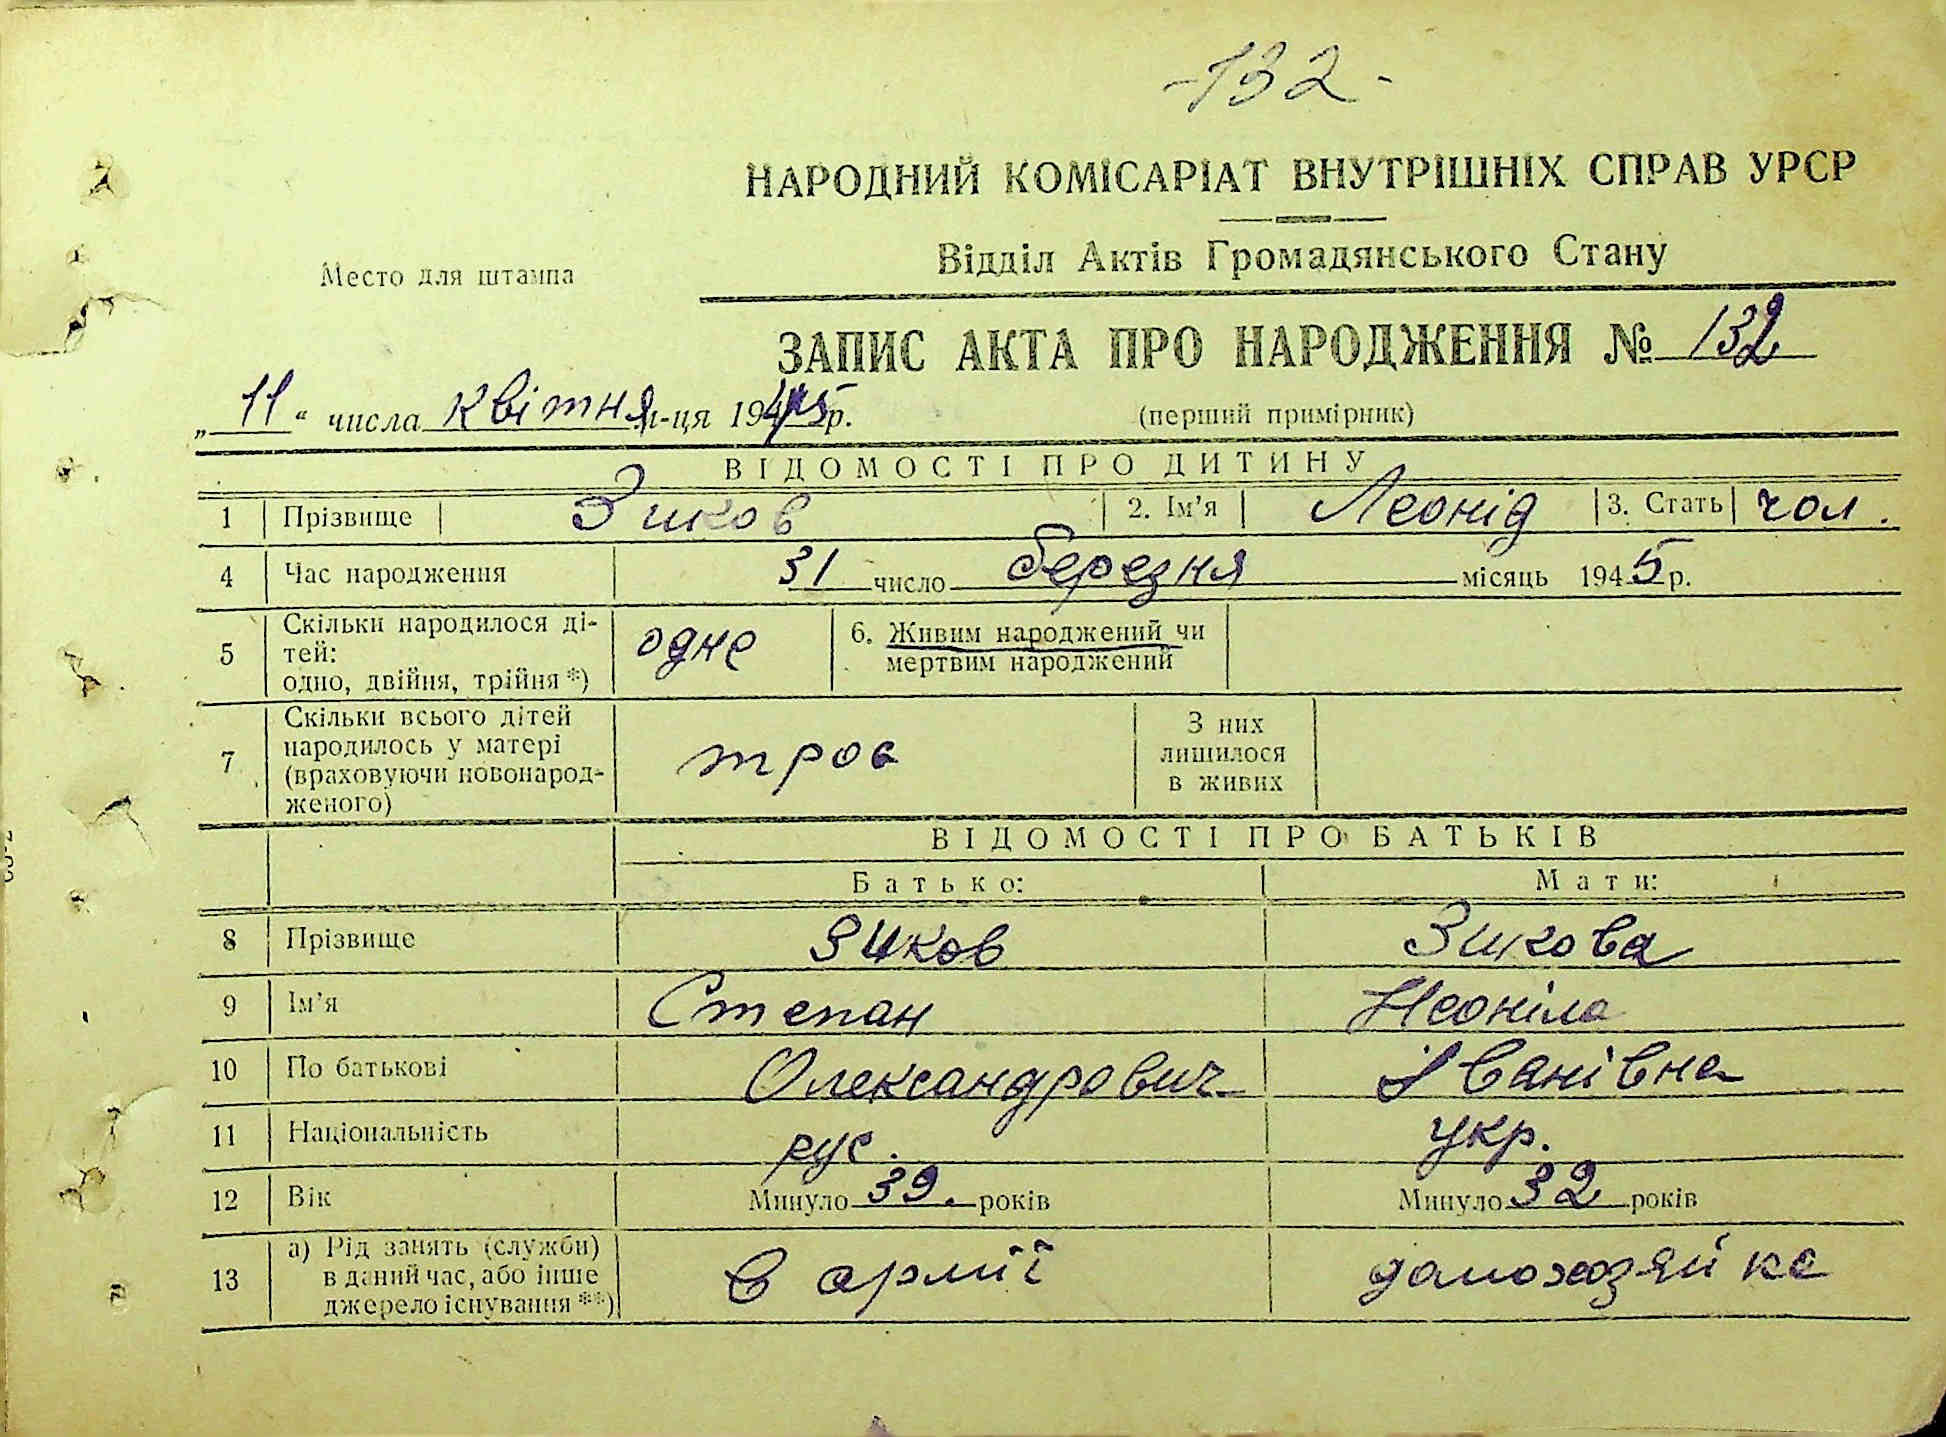 -132-
НАРОДНИЙ КОМІСАРІАТ ВНУТРІШНІХ СПРАВ УРСР
Відділ Актів Громадянського Стану
Место для штампа
ЗАПИС АКТА ПРО НАРОДЖЕННЯ № 132
„11“ числа квітня м-ця 1945 р. (перший примірник)
ВІДОМОСТІ ПРО ДИТИНУ
1 Прізвище Зиков 2. Ім’я Леонід 3. Стать чол.
4 Час народження 31 число березня місяць 1945 р.
5 Скільки народилося ді-
тей:
одно, двійня, трійня *) одне 6. Живим народжений чи
мертвим народжений
7 Скільки всього дітей
народилось у матері
(враховуючи новонарод-
женого) троє З них
лишилося
в живих
ВІДОМОСТІ ПРО БАТЬКІВ
Батько: Мати:
8 Прізвище Зиков Зикова
9 Ім’я Степан Неоніла
10 По батькові Олександрович Іванівна
11 Національність рус. укр.
12 Вік Минуло 39. років Минуло 32 років
13 а) Рід занять (служби)
в даний час, або інше
джерело існування **) в армії домохозяйка